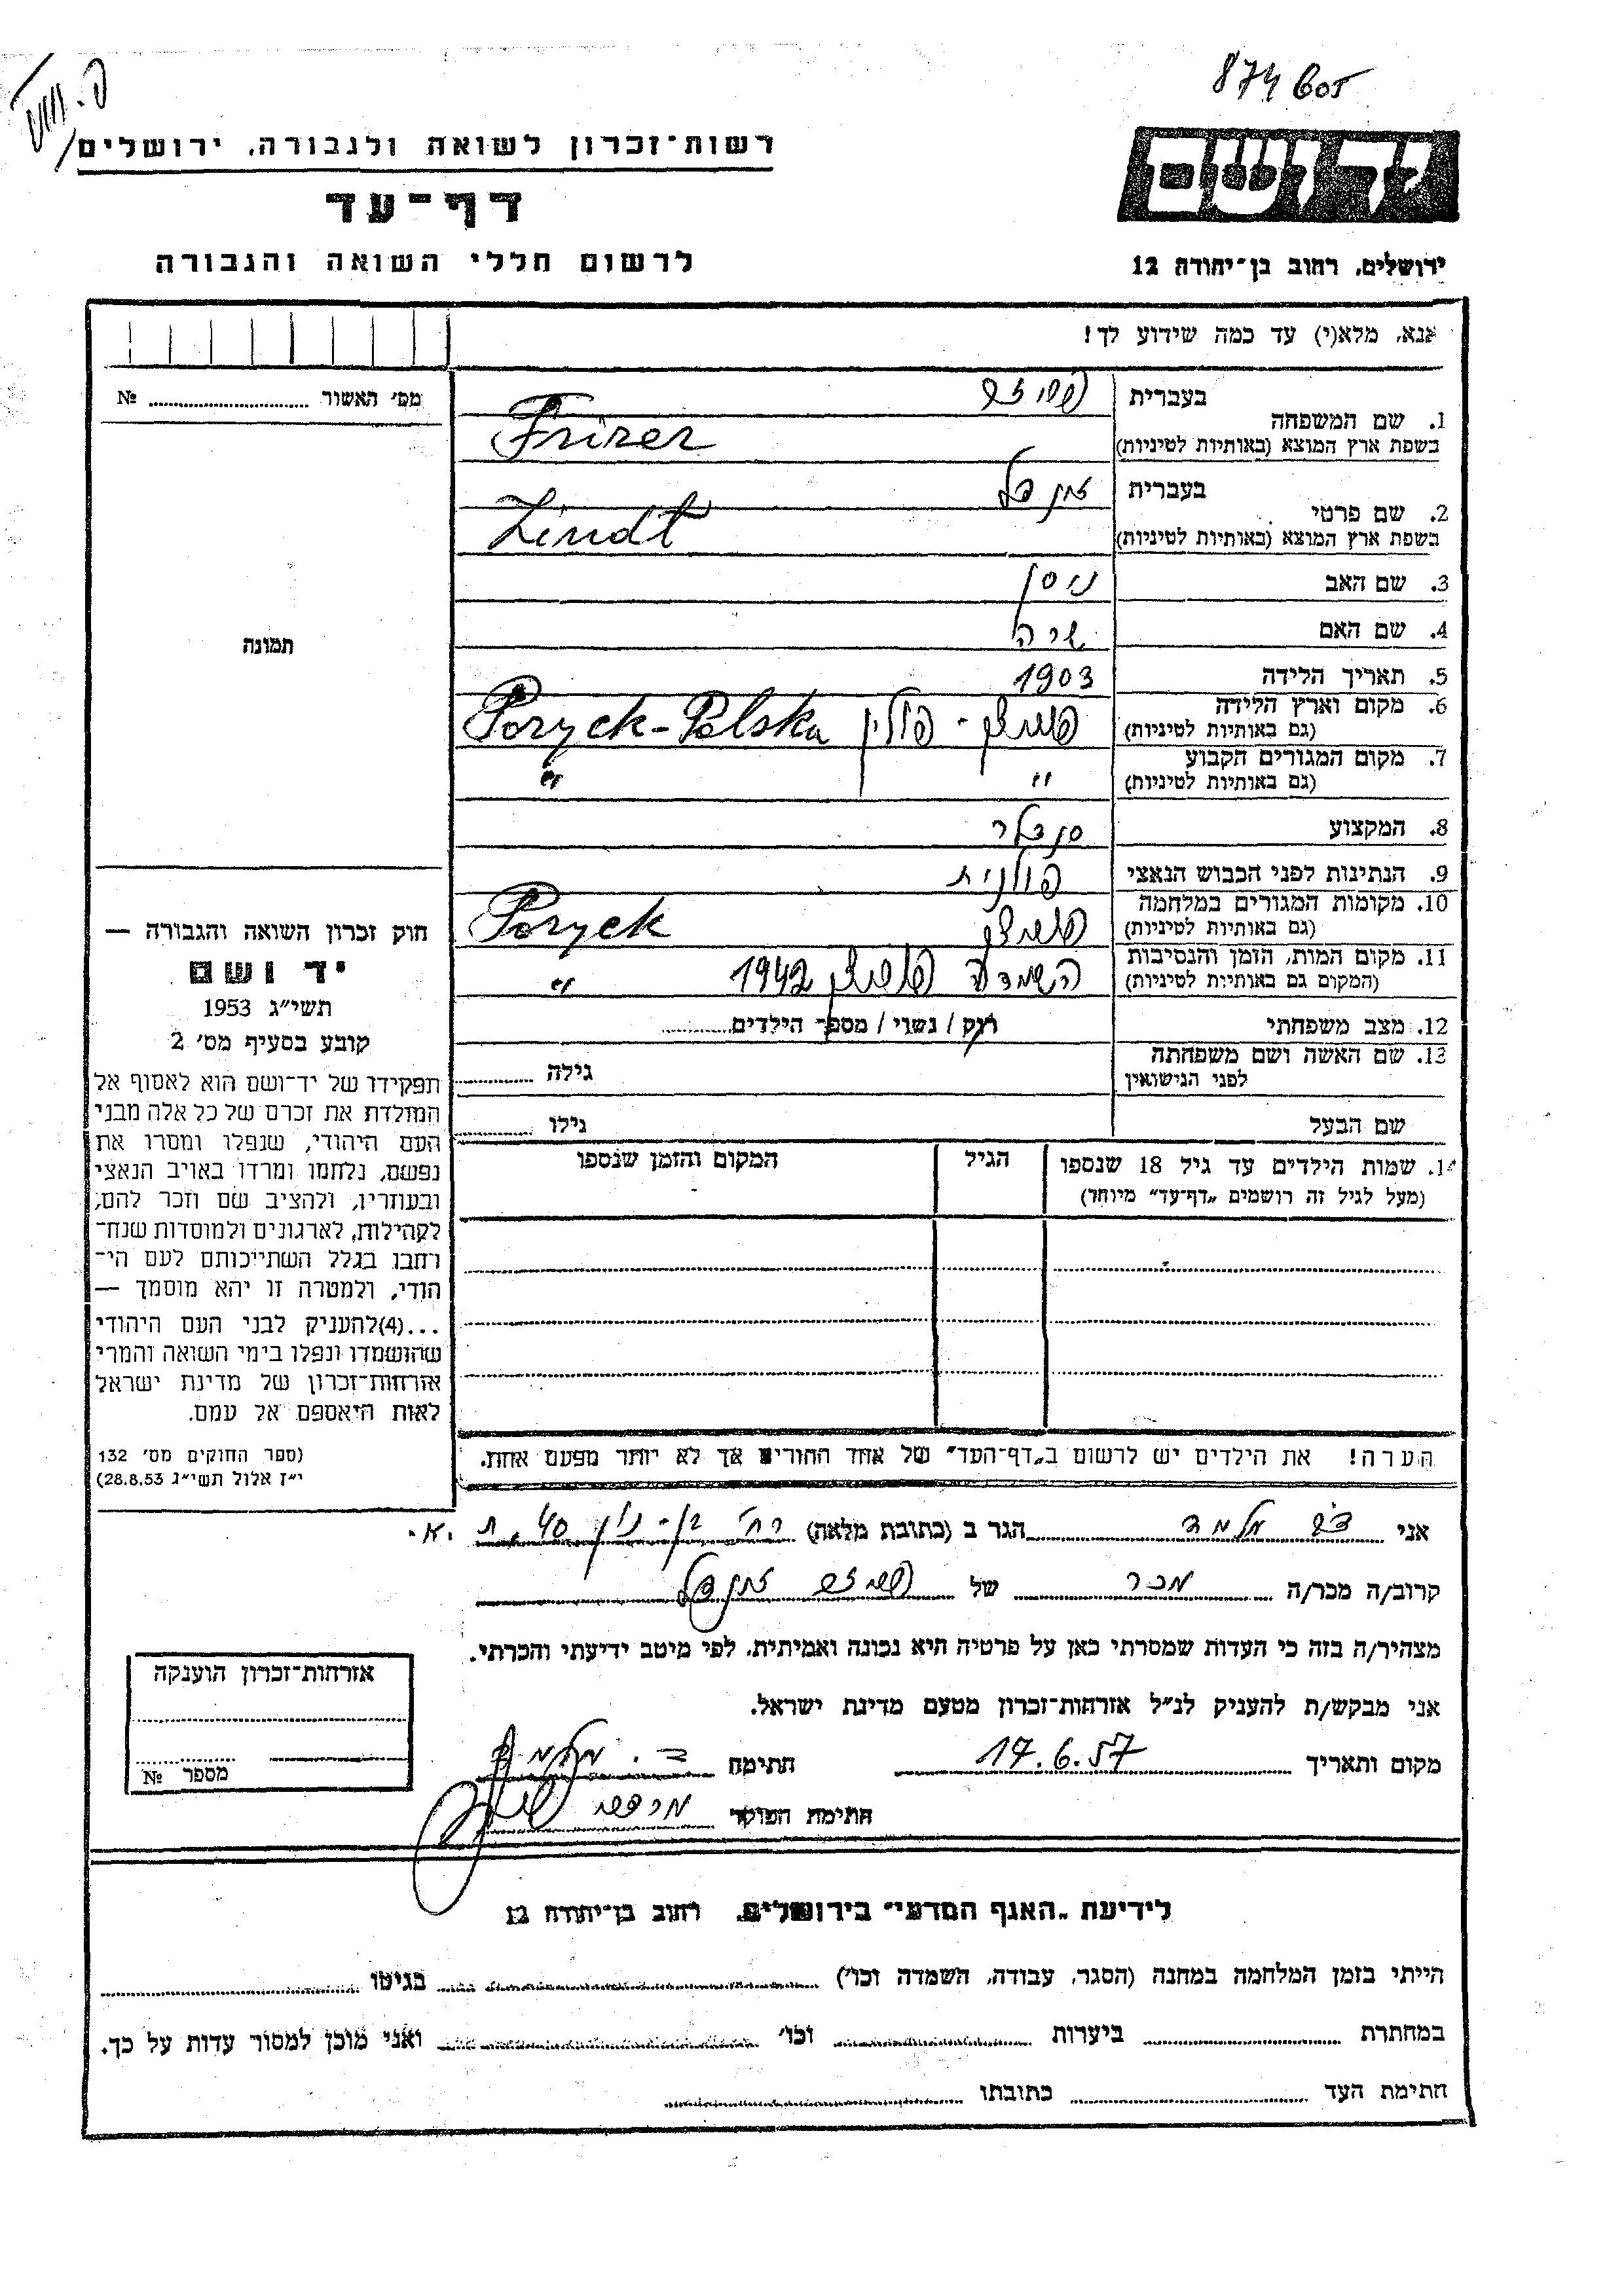 874 605
רשות־זכרון לשואה ולגבורה, ירושלים
ידושם
דף־עד
לרשום חללי השואה והגבורה
ירושלים, רחוב בן־יהודה 12
אנא, מלא(י) עד כמה שידוע לך!
מס׳ האשור № 
1. שם המשפחה
בעברית
בשפת ארץ המוצא (באותיות לטיניות) Frizer
2. שם פרטי
בעברית
בשפת ארץ המוצא (באותיות לטיניות)
3. שם האב ניסן
4. שם האם
5. תאריך הלידה 1903
6. מקום וארץ הלידה
(גם באותיות לטיניות) פוריצק - פולין Poryck-Polska
7. מקום המגורים הקבוע
(גם באותיות לטיניות) " "
8. המקצוע סנדלר
9. הנתינות לפני הכבוש הנאצי פולנית
10. מקומות המגורים במלחמה
(גם באותיות לטיניות) פוריצק Poryck
11. מקום המות, הזמן והנסיבות
(המקום גם באותיות לטיניות) 1942 "
12. מצב משפחתי רוק / נשוי / מספר הילדים
13. שם האשה ושם משפחתה
לפני הנישואין גילה
שם הבעל גילו
14. שמות הילדים עד גיל 18 שנספו
(מעל לגיל זה רושמים „דף־עד" מיוחד)
הגיל
המקום והזמן שנספו
תמונה
חוק זכרון השואה והגבורה —
יד ושם
תשי״ג 1953
קובע בסעיף מס׳ 2
תפקידו של יד־ושם הוא לאסוף אל
המולדת את זכרם של כל אלה מבני
העם היהודי, שנפלו ומסרו את
נפשם, נלחמו ומרדו באויב הנאצי
ובעוזריו, ולהציב שם וזכר להם,
לקהילות, לארגונים ולמוסדות שנח־
רחבו בגלל השתייכותם לעם הי־
הודי, ולמטרה זו יהא מוסמך —
...(4)להעניק לבני העם היהודי
שהושמדו ונפלו בימי השואה והמרי
אזרחות־זכרון של מדינת ישראל
לאות היאספם אל עמם.
(ספר החוקים מס׳ 132
י״ז אלול תשי״ג 28.8.53)
הערה! את הילדים יש לרשום ב„דף־העד" של אחד ההורים אך לא יותר מפעם אחת.
אני דב מלמד הגר ב (כתובת מלאה) רח׳ בן-נון 40, ת.א.
קרוב/ה מכר/ה מכר של
מצהיר/ה בזה כי העדות שמסרתי כאן על פרטיה היא נכונה ואמיתית, לפי מיטב ידיעתי והכרתי.
אני מבקש/ת להעניק לנ״ל אזרחות־זכרון מטעם מדינת ישראל.
מקום ותאריך 17.6.57 חתימה ד. מלמד
חתימת הפוקד
אזרחות־זכרון הוענקה
מספר №
לידיעת „האגף המדעי" בירושלים, רחוב בן־יהודה 12
הייתי בזמן המלחמה במחנה (הסגר, עבודה, השמדה וכו׳) בגיטו
במחתרת ביערות וכו׳ ואני מוכן למסור עדות על כך.
חתימת העד כתובתו